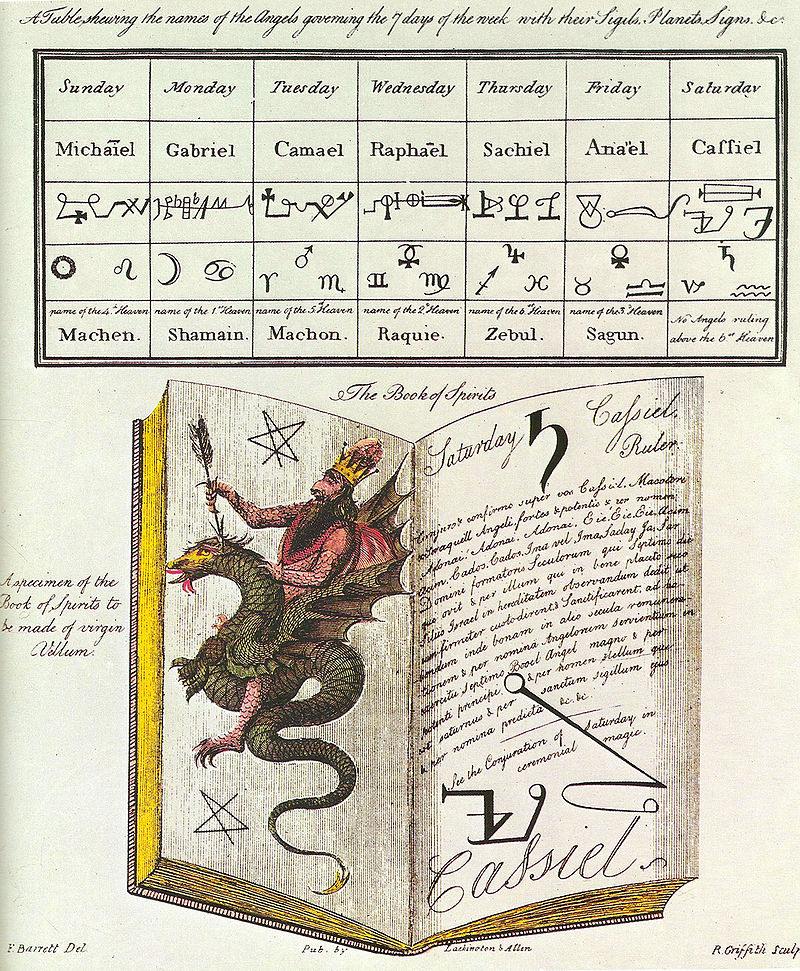 A Table, shewing the names of the Angels governing the 7 days of the week with their Sigils, Planets, Signs, &c.
Sunday Monday Tuesday Wednesday Thursday Friday Saturday
Michaïel Gabriel Camael Raphaël Sachiel Ana'el Caſſiel
☉ ♌ ☽ ♋ ♂ ♈ ♏ ☿ ♊ ♍ ♃ ♐ ♓ ♀ ♉ ♎ ♄ ♑ ♒
name of the 4.th Heaven name of the 1.st Heaven name of the 5.th Heaven name of the 2.d Heaven name of the 6.th Heaven name of the 3.d Heaven No Angels ruling
Machen. Shamain. Machon. Raquie. Zebul. Sagun. above the 6.th Heaven
The Book of Spirits
Saturday ♄ Caſsiel,
Ruler.
Conjuro & confirmo super vos Caſsiel, Macatori
Seraquiel Angeli fortes & potentis & per nomen
Adonai, Adonai, Adonai, Eie, Eie, Eie, Acim
Acim, Cados, Cados, Ima vel Ima, Saday, Ja, Sar
Domini formatoris Seculorum qui Septimo die
& per illum qui in bene placito suo
filiis Israel in hereditatem observandum dedit ut
firmiter custodirent & Sanctificarent, ad
inde bonam in alio secula remunera-
tionem & per nomina Angelorum servientium in
exercitu septimo Booel Angel magno & per
potenti principe & per nomen stellum que
est saturnus & per sanctum sigillum ejus
& per nomina predicta &c. &c.
See the Conjuration of Saturday in
ceremonial magic.
Cassiel.
A specimen of the
Book of Spirits to
be made of virgin
Vellum.
F. Barrett Del. Pub. by Lackington & Allen R. Griffith Sculp